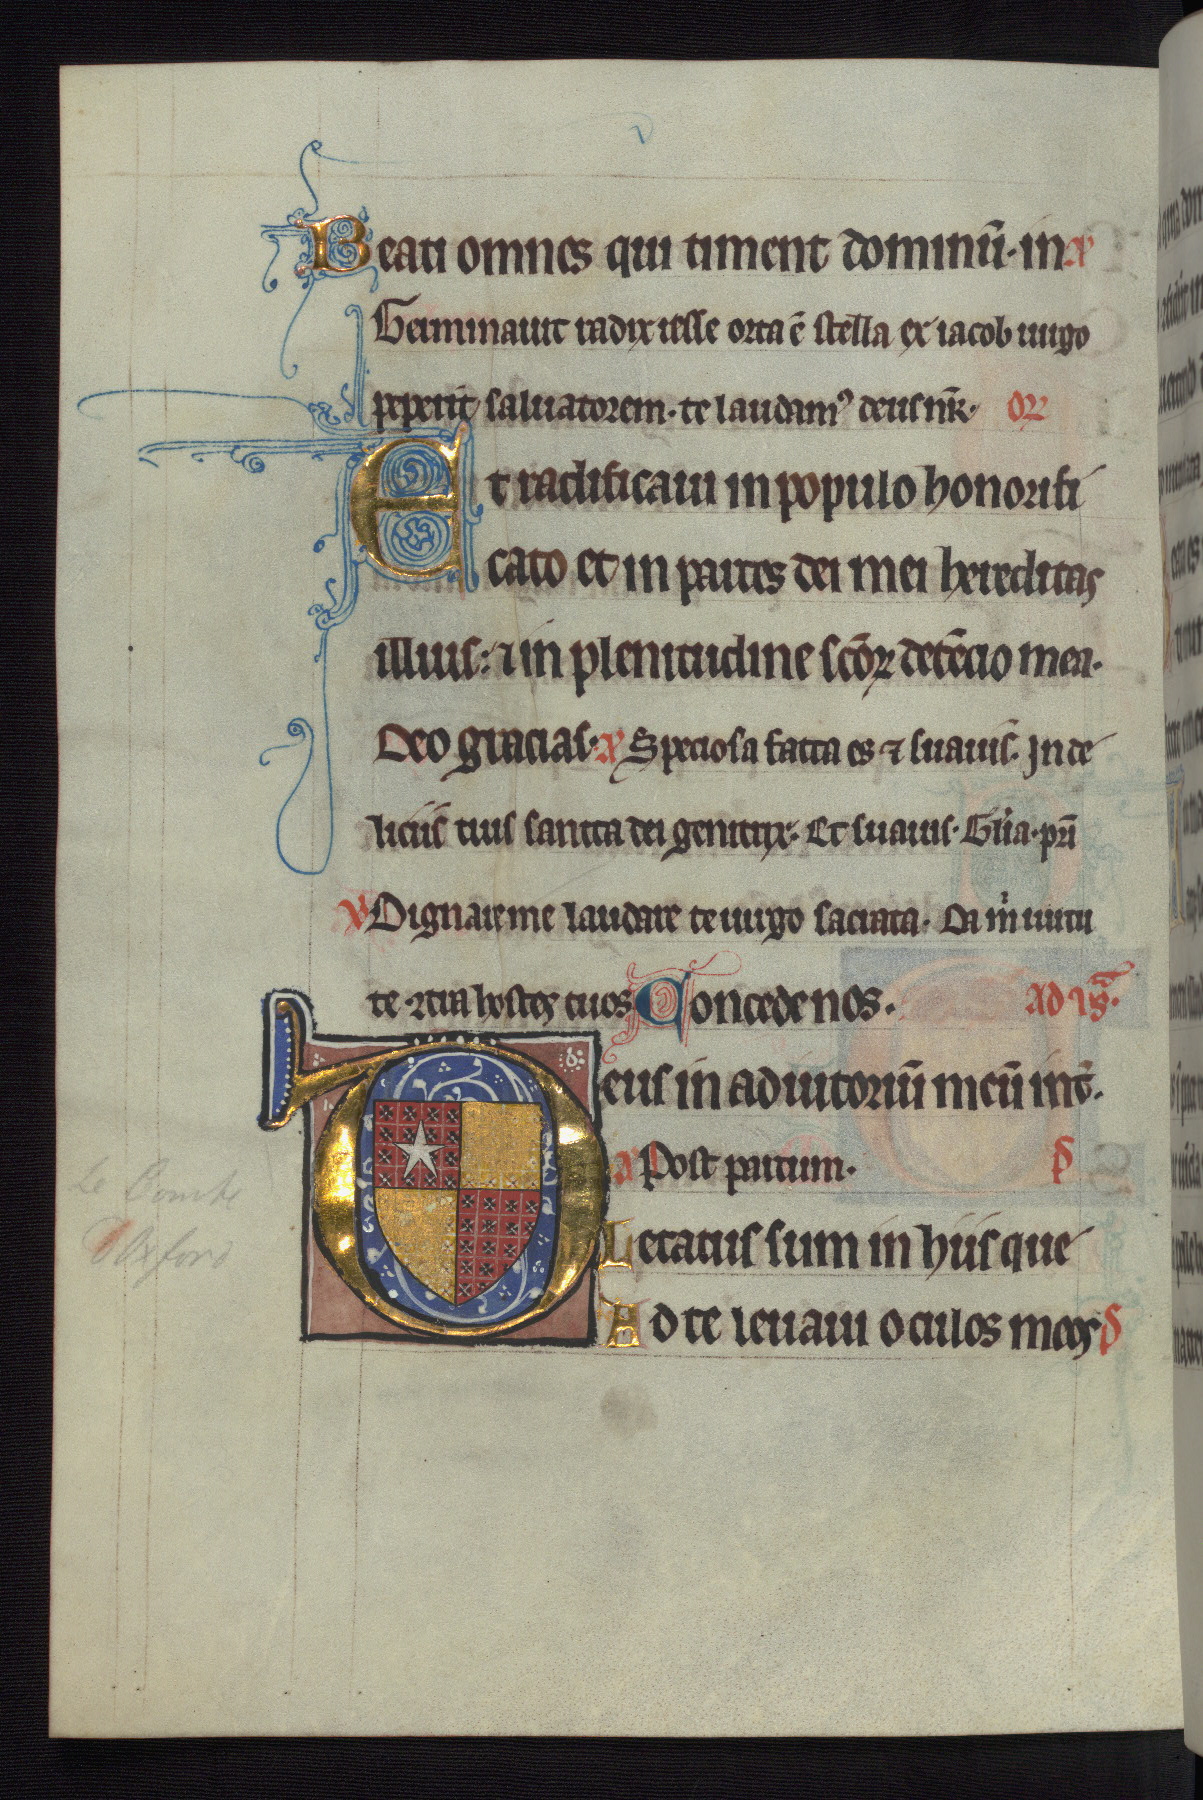 Beati omnes qui timent dominū· in
Germinauit radix iesse orta ē stella ex iacob uirgo
peperit saluatorem· te laudamꝰ deus nr̄·
Et radicaui in populo honorifi
cato et in partes dei mei hereditas
illius: ⁊ in plenitudine scōꝝ detēcio mea·
Deo gracias· Speciosa facta es ⁊ suauis· In de
liciis tuis sancta dei genitrix· Et suauis· Gl̄ia· pr̄i
Dignare me laudare te uirgo sacrata· Da m̄ uirtu
te ꝯtra hostes tuos Concede nos· Ad
Deus in adiutoriū meū int̄·
a Post partum· p̄
Letatus sum in hiis que
Le Comte
d'Oxford
Ad te leuaui oculos meos p̄